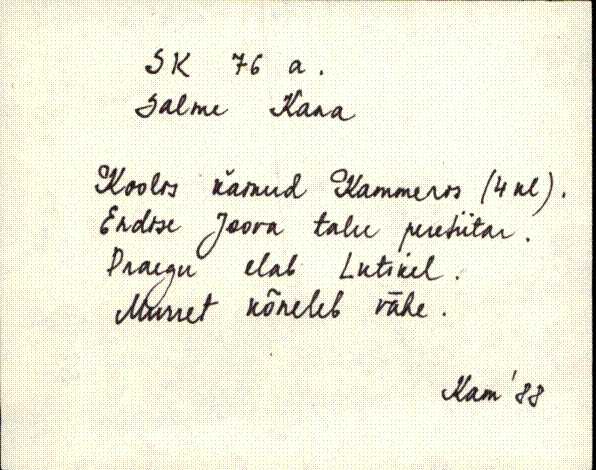 SK 76 a.
Salme Kana
Koolis käinud Kammeris (4 kl).
Endise Joova talu peretütar.
Praegu elab Lutikel.
Murret kõneleb vähe.
Kam '88